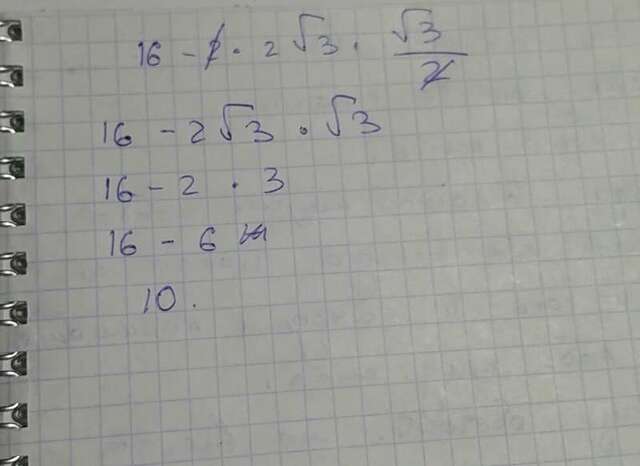 16 - 2 · 2√3 · √3/2
16 - 2√3 · √3
16 - 2 · 3
16 - 6
10.